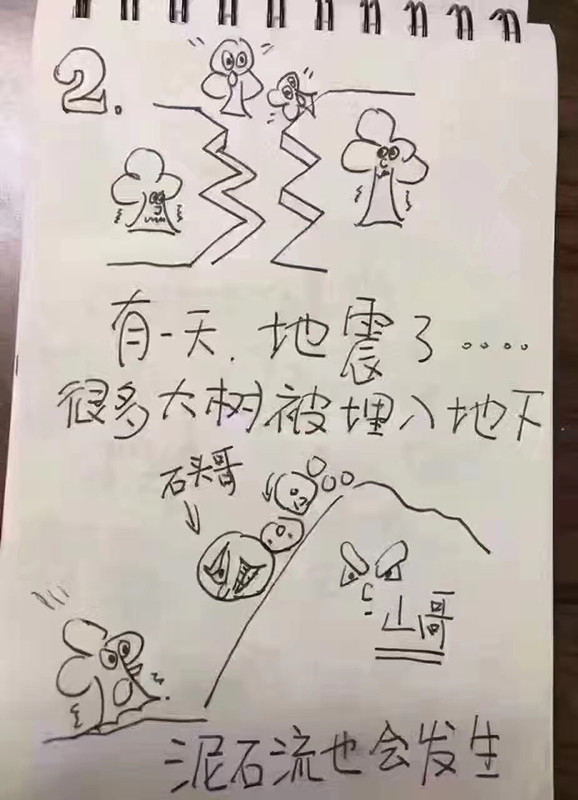 2.
有一天,地震了....
很多大树被埋入地下
石头哥
山哥
泥石流也会发生